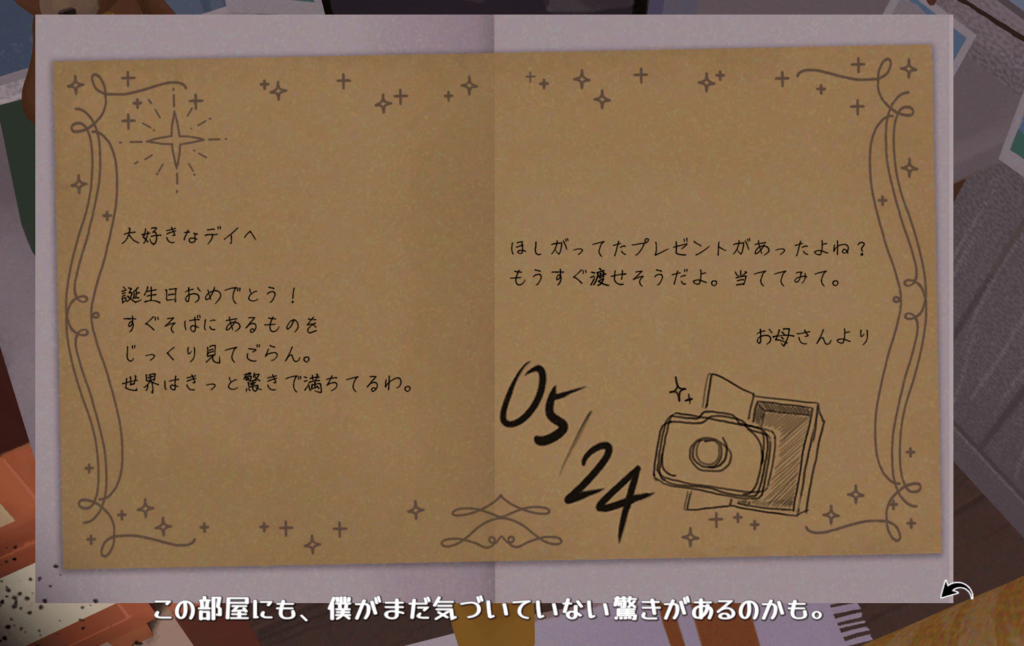 大好きなデイへ
誕生日おめでとう！
すぐそばにあるものを
じっくり見てごらん。
世界はきっと驚きで満ちてるわ。
ほしがってたプレゼントがあったよね？
もうすぐ渡せそうだよ。当ててみて。
お母さんより
05/24
この部屋にも、僕がまだ気づいていない驚きがあるのかも。